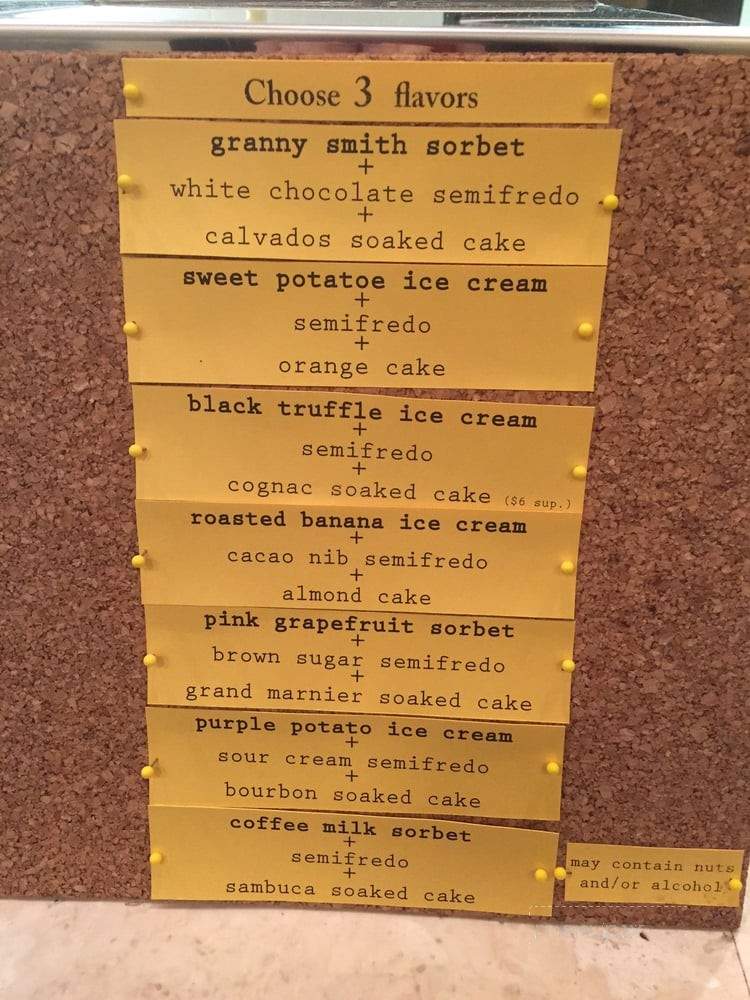 Choose 3 flavors
granny smith sorbet
+
white chocolate semifredo
+
calvados soaked cake
sweet potatoe ice cream
+
semifredo
+
orange cake
black truffle ice cream
+
semifredo
+
cognac soaked cake ($6 sup.)
roasted banana ice cream
+
cacao nib semifredo
+
almond cake
pink grapefruit sorbet
+
brown sugar semifredo
+
grand marnier soaked cake
purple potato ice cream
+
sour cream semifredo
+
bourbon soaked cake
coffee milk sorbet
+
semifredo
+
sambuca soaked cake
may contain nuts
and/or alcohol